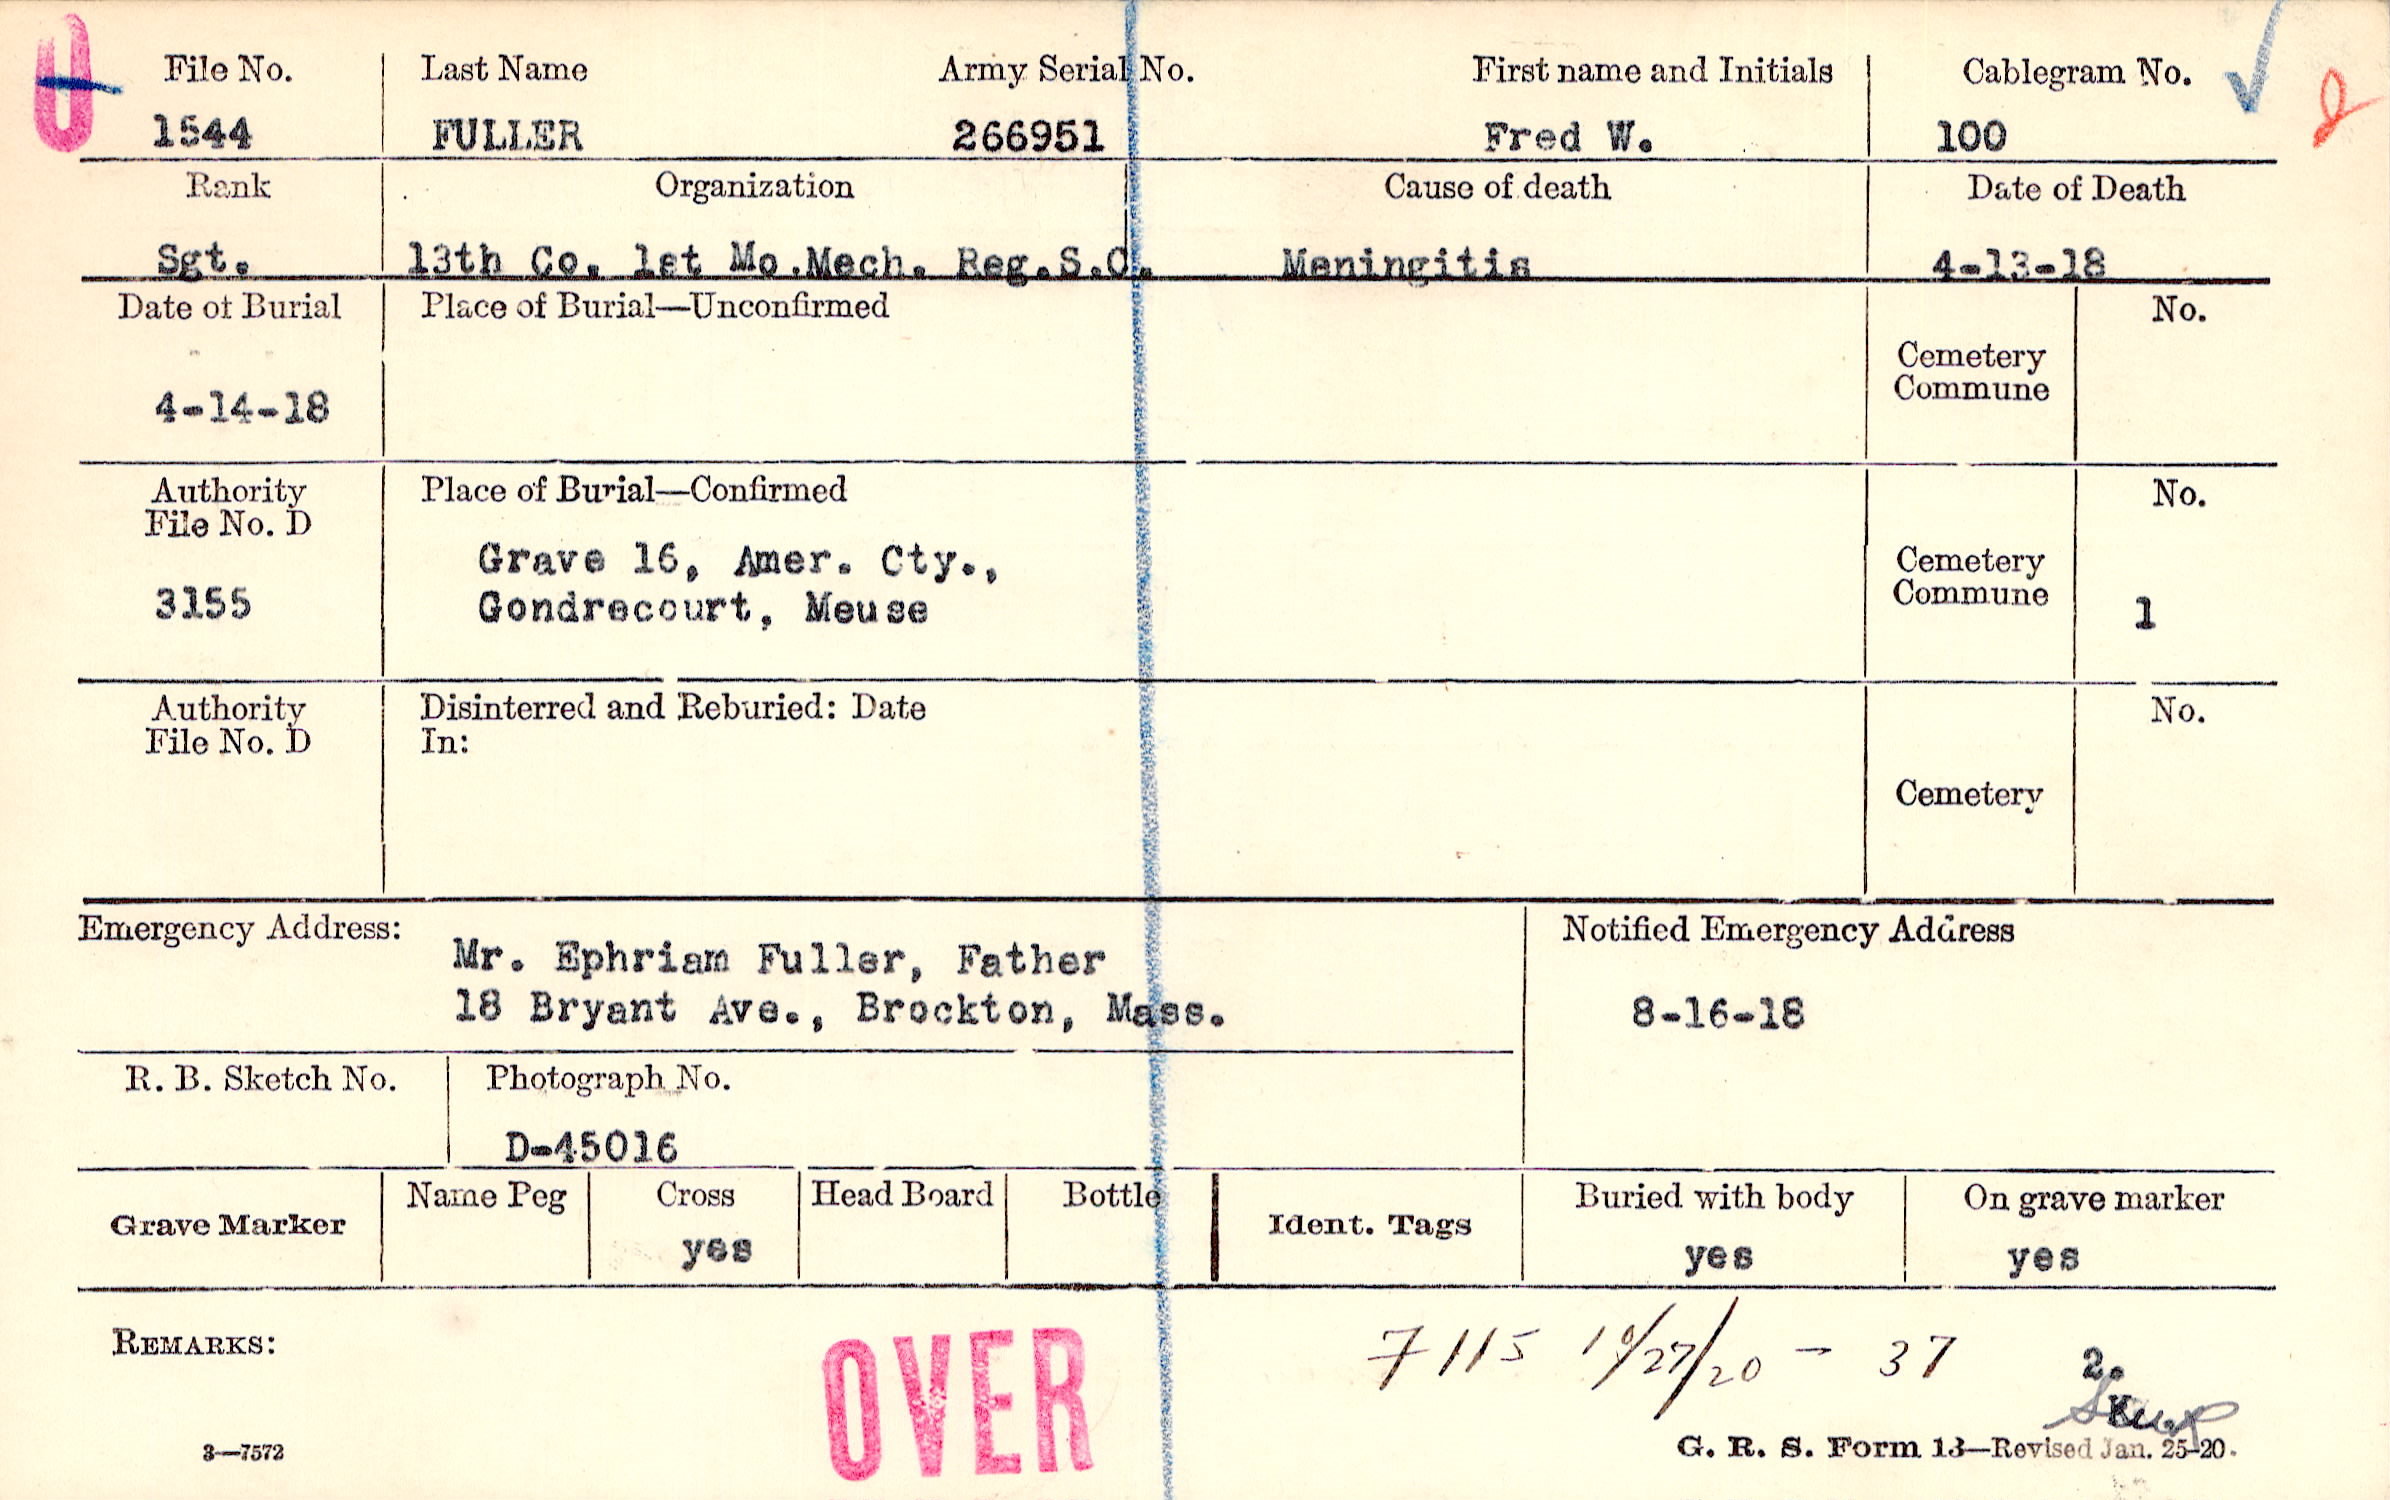 U
File No. Last Name Army Serial No. First name and Initials Cablegram No.
1544 FULLER 266951 Fred W. 100
Rank Organization Cause of death Date of Death
Sgt. 13th Co. 1st Mo.Mech. Reg.S.C. Meningitis 4-13-18
Date of Burial Place of Burial—Unconfirmed No.
Cemetery
Commune
4-14-18
Authority Place of Burial—Confirmed No.
File No. D
Grave 16, Amer. Cty., Cemetery
3155 Gondrecourt, Meuse Commune 1
Authority Disinterred and Reburied: Date No.
File No. D In:
Cemetery
Emergency Address: Notified Emergency Address
Mr. Ephriam Fuller, Father
18 Bryant Ave., Brockton, Mass. 8-16-18
R. B. Sketch No. Photograph No.
D-45016
Name Peg Cross Head Board Bottle Buried with body On grave marker
Grave Marker Ident. Tags
yes yes yes
REMARKS: OVER 7115 10/27/20 - 37 2.
3—7572 G. R. S. Form 13—Revised Jan. 25-20.